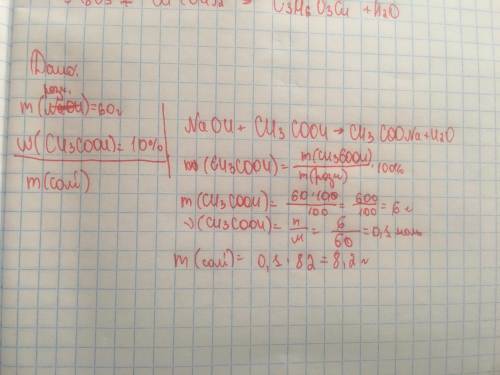 C3H6O3Cu + H2O
Дано:
розч.
m(NaOH)=60г
w(CH3COOH)=10%
m(солі)
NaOH + CH3COOH → CH3COONa+H2O
w(CH3COOH)= m(CH3COOH)/m(розч) · 100%
m(CH3COOH)= 60·100/100 = 600/100 = 6г
ν(CH3COOH)= n/M = 6/60 = 0,1 моль
m(солі)= 0,1 · 82 = 8,2г